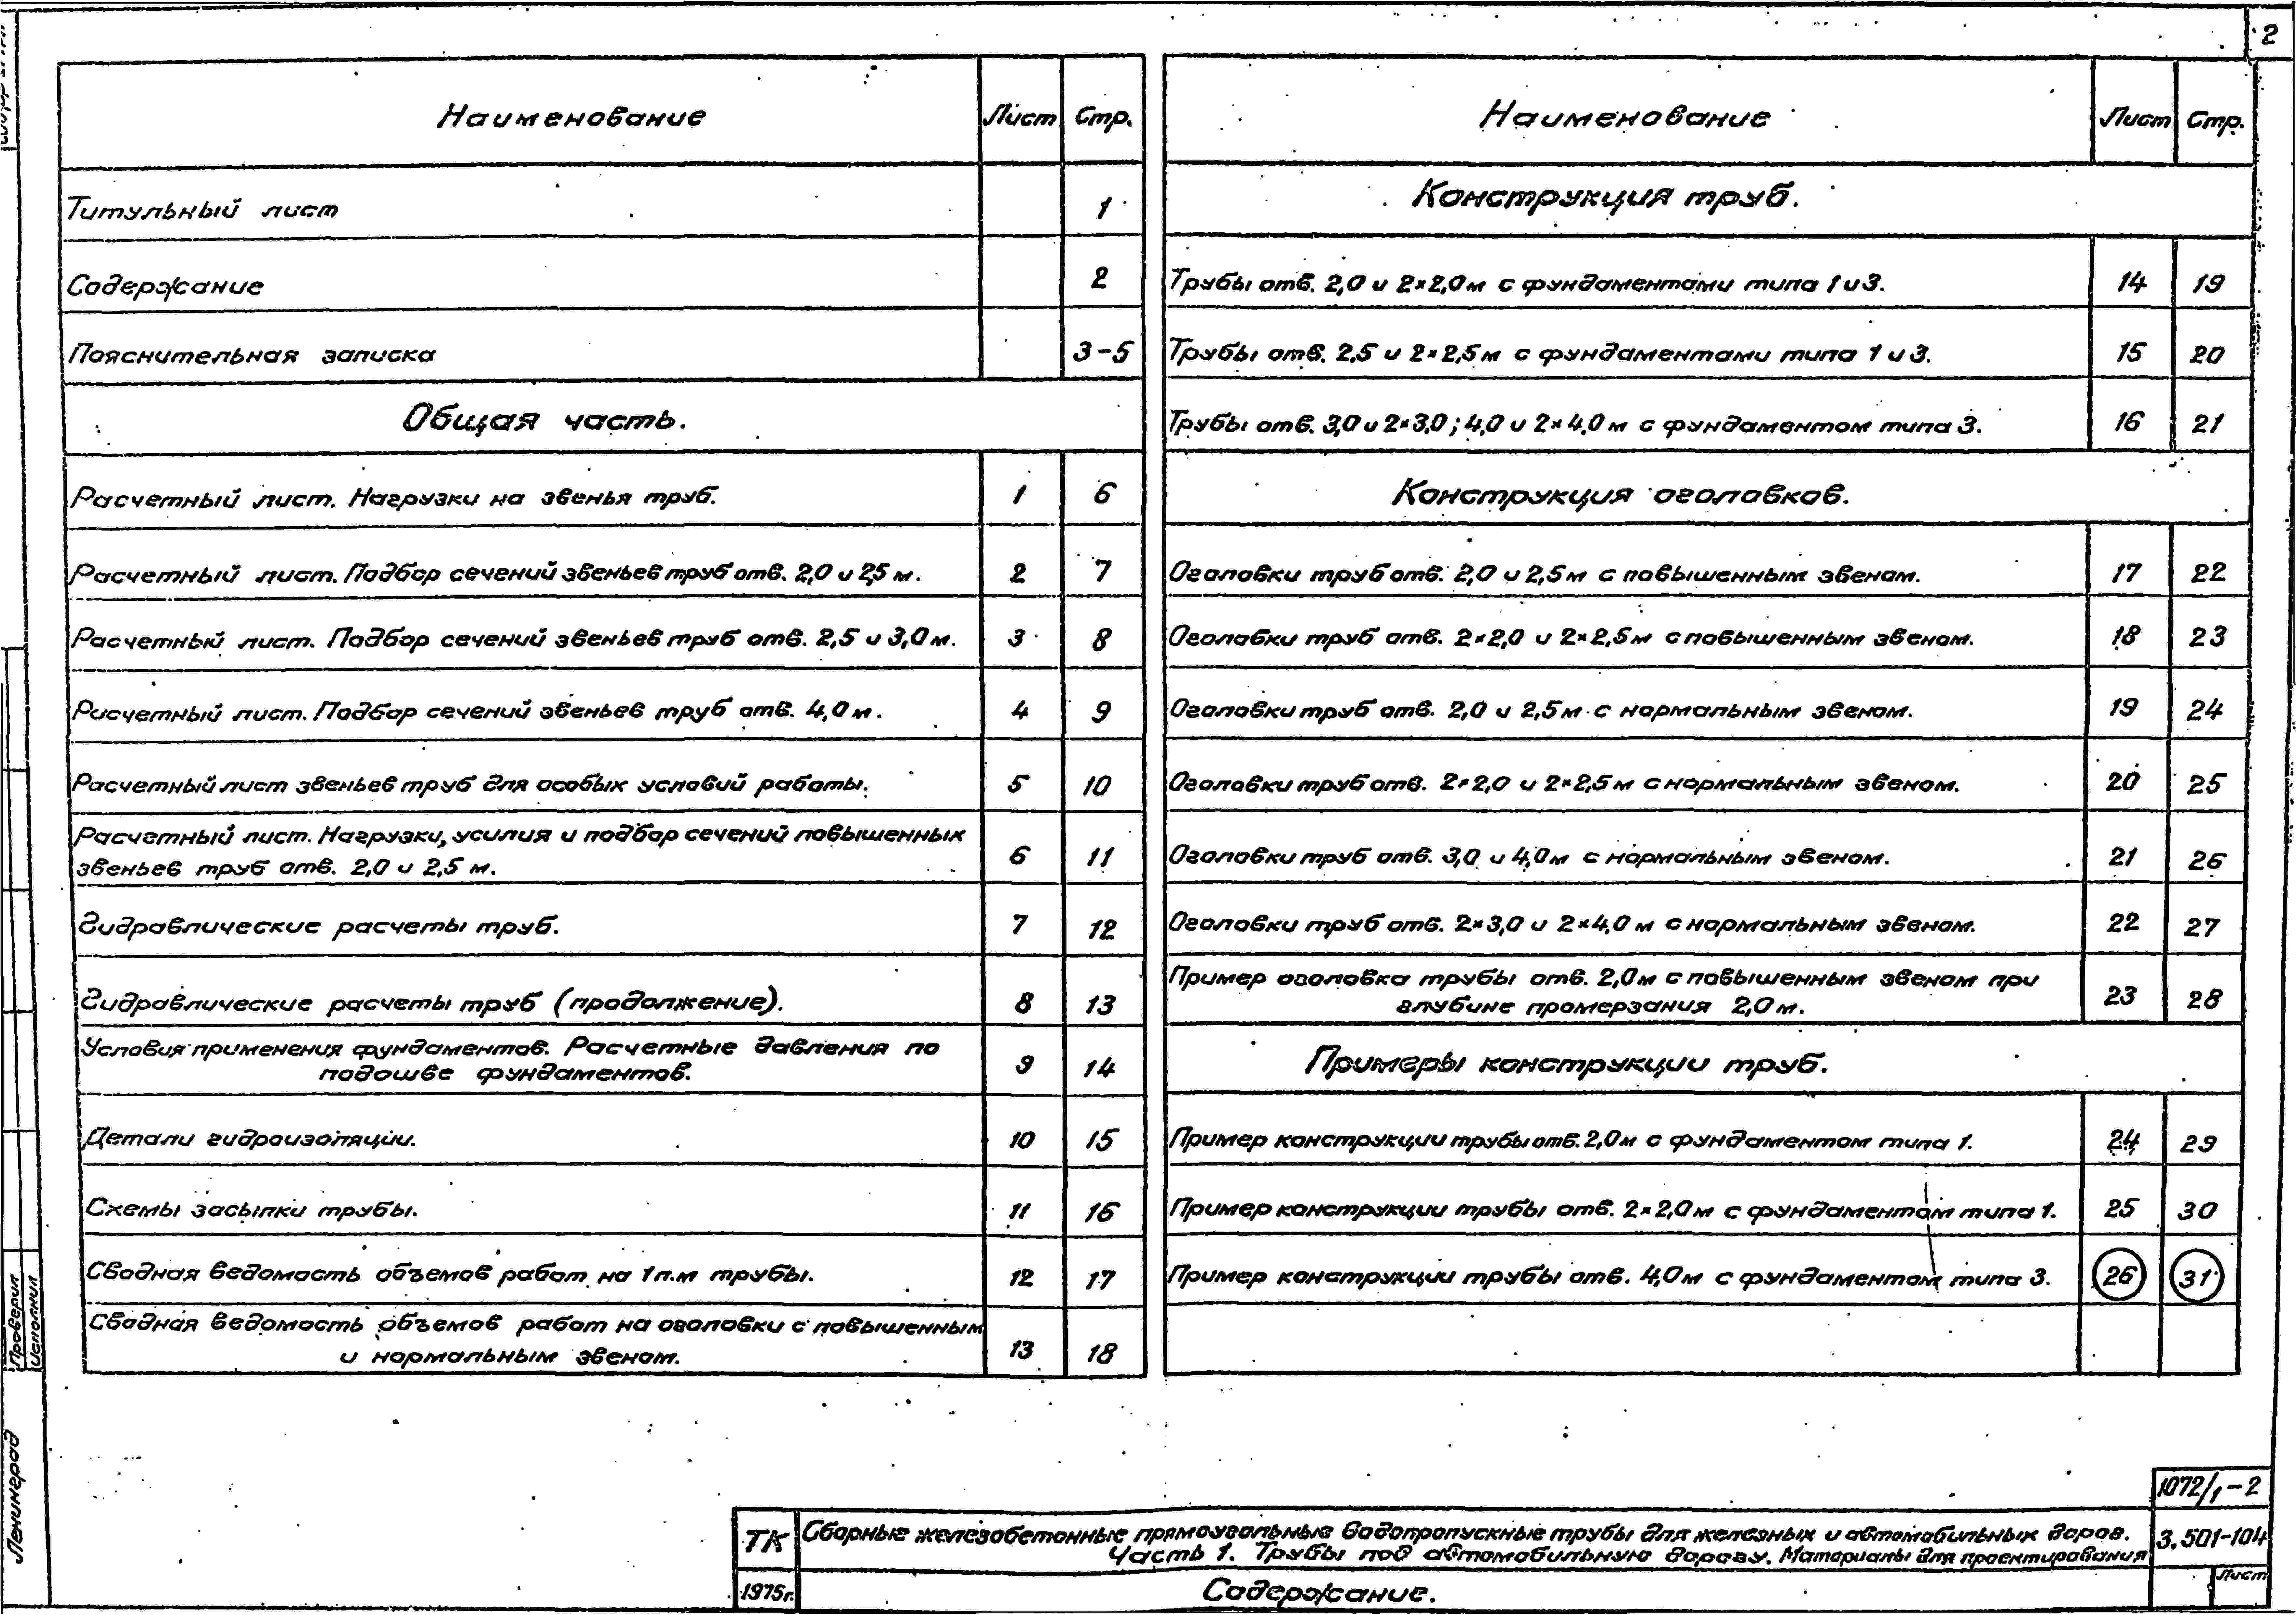 2
Наименование Лист Стр.
Титульный лист 1
Содержание 2
Пояснительная записка 3-5
Общая часть.
Расчетный лист. Нагрузки на звенья труб. 1 6
Расчетный лист. Подбор сечений звеньев труб отв. 2,0 и 2,5 м. 2 7
Расчетный лист. Подбор сечений звеньев труб отв. 2,5 и 3,0 м. 3 8
Расчетный лист. Подбор сечений звеньев труб отв. 4,0 м. 4 9
Расчетный лист звеньев труб для особых условий работы. 5 10
Расчетный лист. Нагрузки, усилия и подбор сечений повышенных
звеньев труб отв. 2,0 и 2,5 м. 6 11
Гидравлические расчеты труб. 7 12
Гидравлические расчеты труб (продолжение). 8 13
Условия применения фундаментов. Расчетные давления по
подошве фундаментов. 9 14
Детали гидроизоляции. 10 15
Схемы засыпки трубы. 11 16
Сводная ведомость объемов работ на 1 п.м трубы. 12 17
Сводная ведомость объемов работ на оголовки с повышенным
и нормальным звеном. 13 18
Наименование Лист Стр.
Конструкция труб.
Трубы отв. 2,0 и 2×2,0 м с фундаментами типа 1 и 3. 14 19
Трубы отв. 2,5 и 2×2,5 м с фундаментами типа 1 и 3. 15 20
Трубы отв. 3,0 и 2×3,0; 4,0 и 2×4,0 м с фундаментом типа 3. 16 21
Конструкция оголовков.
Оголовки труб отв. 2,0 и 2,5 м с повышенным звеном. 17 22
Оголовки труб отв. 2×2,0 и 2×2,5 м с повышенным звеном. 18 23
Оголовки труб отв. 2,0 и 2,5 м с нормальным звеном. 19 24
Оголовки труб отв. 2×2,0 и 2×2,5 м с нормальным звеном. 20 25
Оголовки труб отв. 3,0 и 4,0 м с нормальным звеном. 21 26
Оголовки труб отв. 2×3,0 и 2×4,0 м с нормальным звеном. 22 27
Пример оголовка трубы отв. 2,0 м с повышенным звеном при
глубине промерзания 2,0 м. 23 28
Примеры конструкции труб.
Пример конструкции трубы отв. 2,0 м с фундаментом типа 1. 24 29
Пример конструкции трубы отв. 2×2,0 м с фундаментом типа 1. 25 30
Пример конструкции трубы отв. 4,0 м с фундаментом типа 3. 26 31
Проверил
Исполнил
Ленинград
1072/1-2
ТК Сборные железобетонные прямоугольные водопропускные трубы для железных и автомобильных дорог. 3.501-104
Часть 1. Трубы под автомобильную дорогу. Материалы для проектирования
1975г. Содержание. Лист